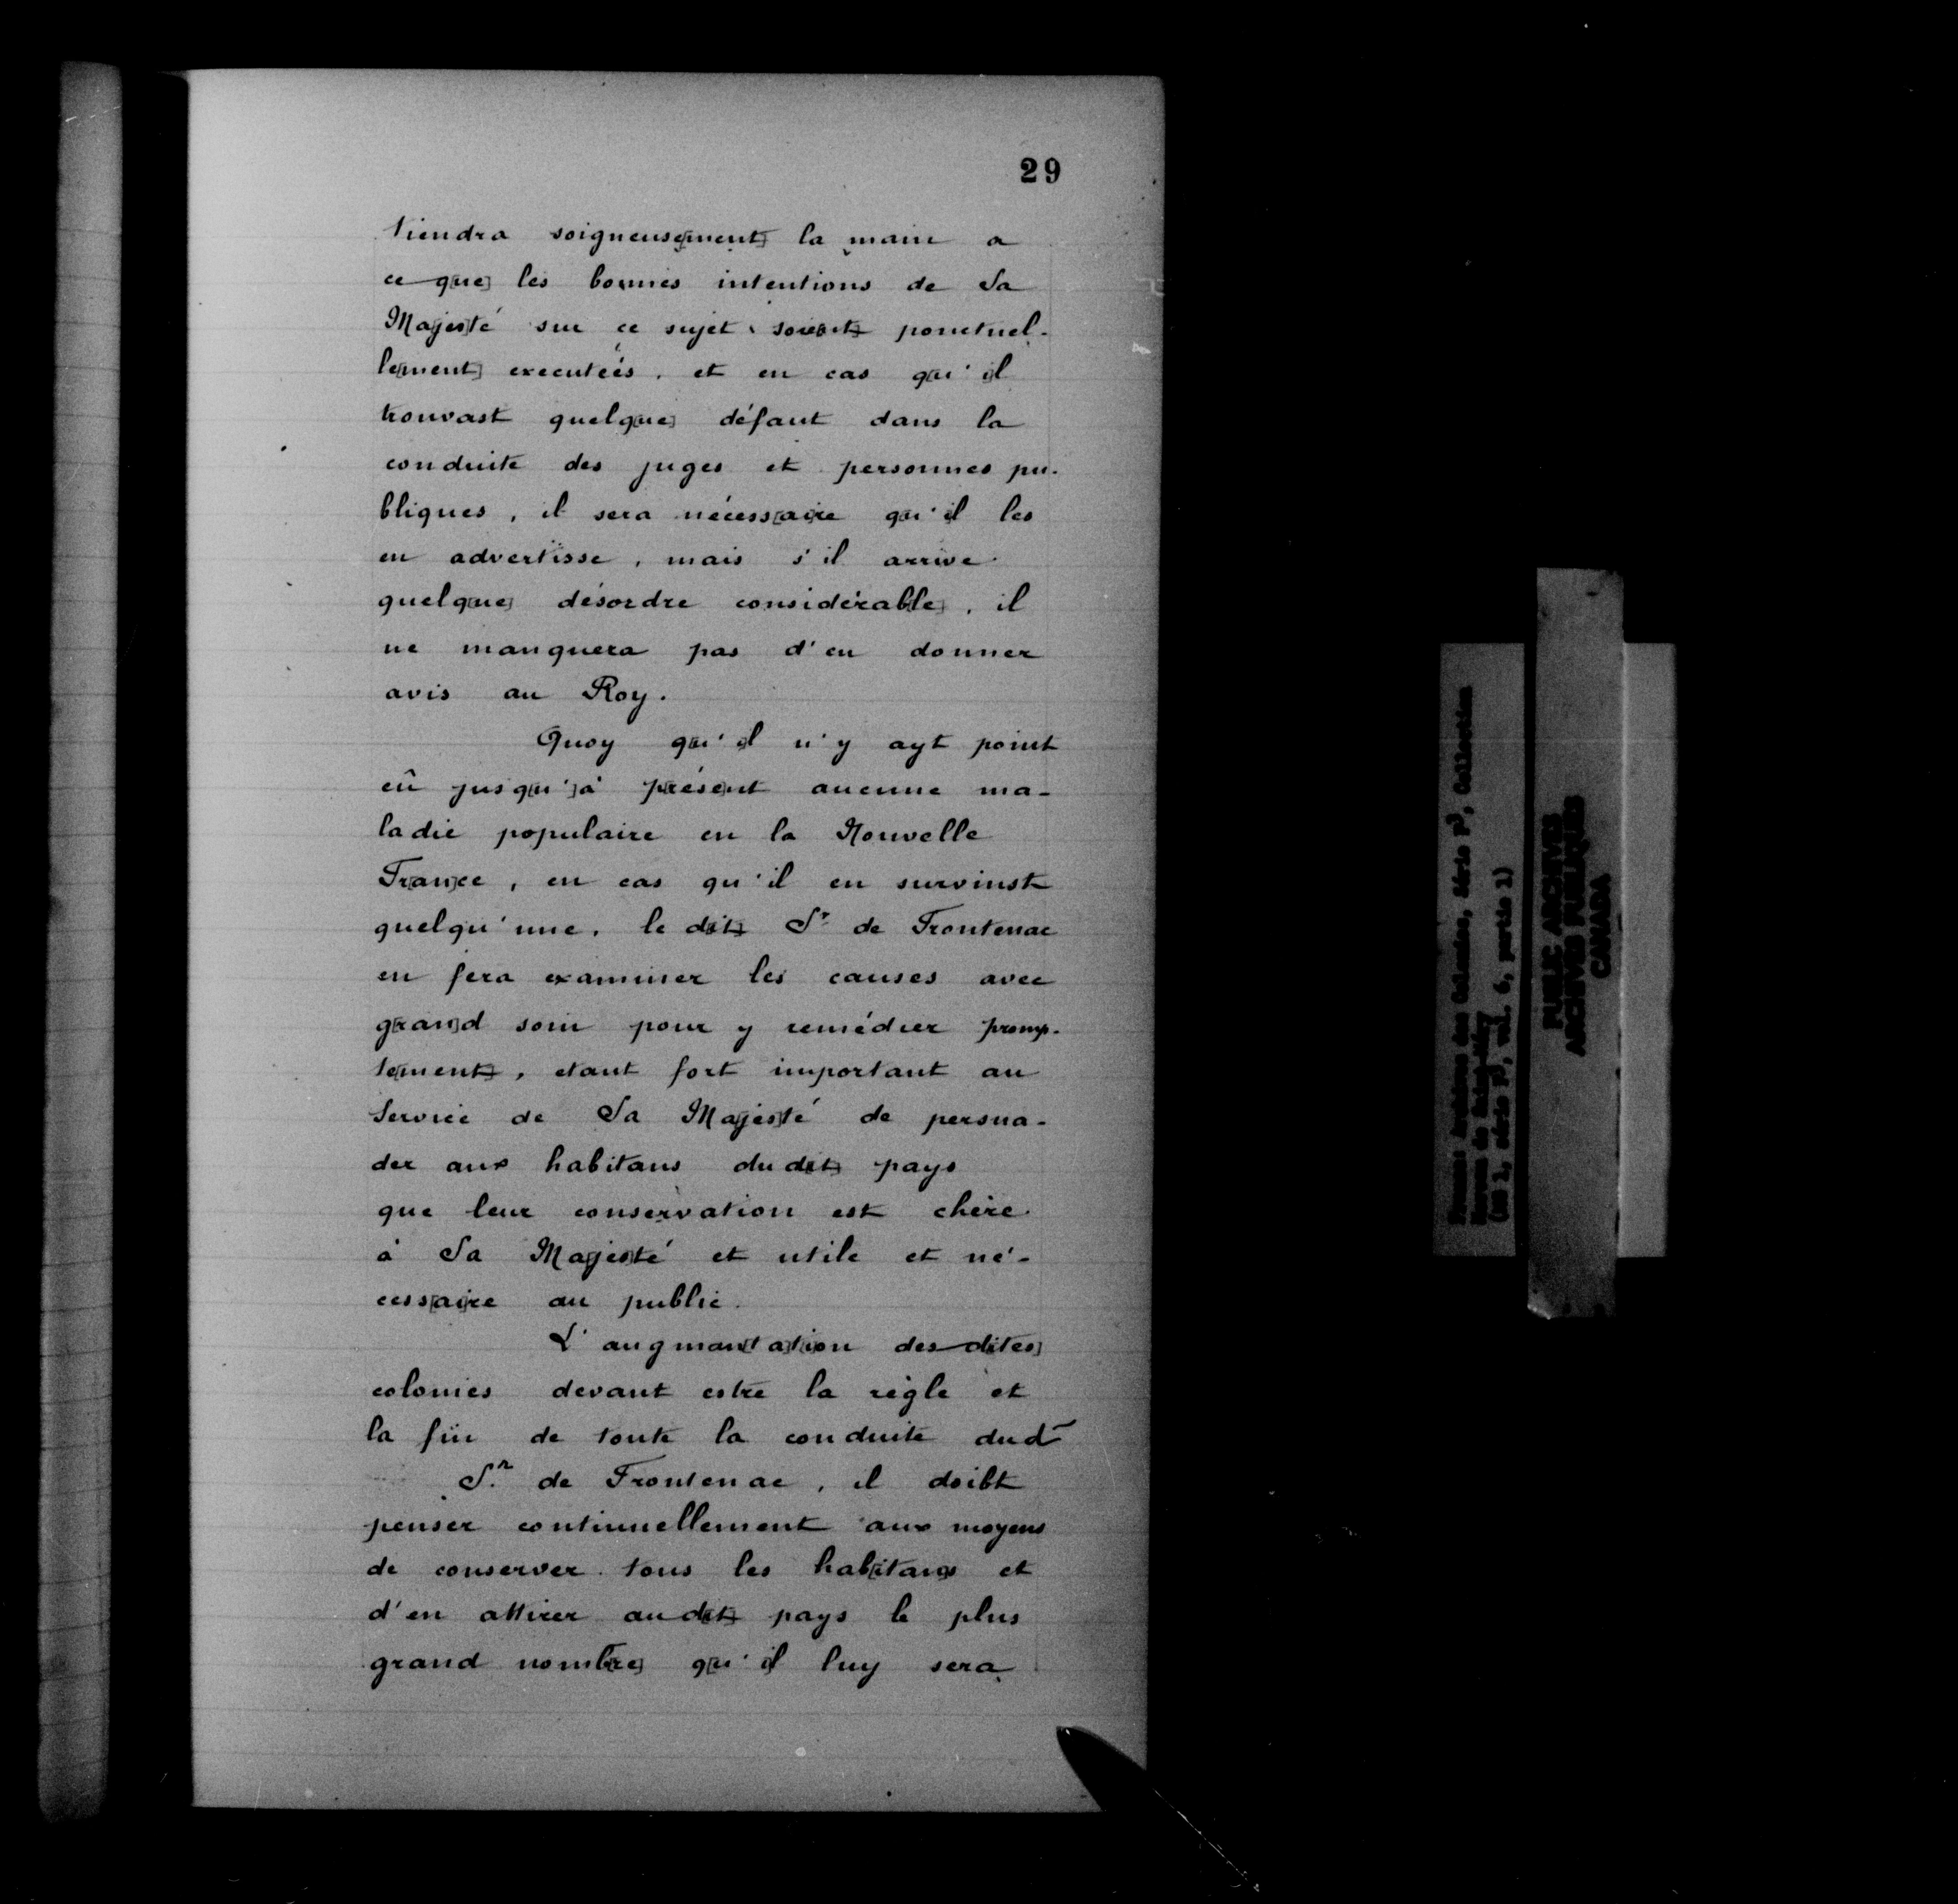 29
tiendra soigneuse[ment] la main a
ce q[ue] les bonnes intentions de Sa
Ma[jes]té sur ce sujet soient ponctuel-
le[ment] executées, et en cas q[u'i]l
trouvast quelq[ue] défaut dans la
conduite des juges et personnes pu-
bliques, il sera nécess[ai]re q[u'i]l les
en advertisse, mais s'il arrive
quelq[ue] désordre considérab[le], il
ne manquera pas d'en donner
avis au Roy.
Quoy q[u'i]l n'y ayt point
eû jusq[u']à p[rése]nt aucune ma-
ladie populaire en la Nouvelle
F[ran]ce, en cas qu'il en survinst
quelqu'une, le d[it] Sr de Frontenac
en fera examiner les causes avec
g[ran]d soin pour y remédier promp-
te[ment], etant fort important au
Service de Sa Ma[jes]té de persua-
der aux habitans dud[it] pays
que leur conservation est chère
à Sa Ma[jes]té et utile et né-
cess[ai]re au public.
L'augman[ta]t[i]on des d[ites]
colonies devant estre la règle et
la fin de toute la conduite dud
Sr. de Frontenac, il doibt
penser continuellement aux moyens
de conserver tous les hab[itan]s et
d'en attirer aud[it] pays le plus
grand nomb[re] q[u'i]l luy sera
PUBLIC ARCHIVES
ARCHIVES PUBLIQUES
CANADA